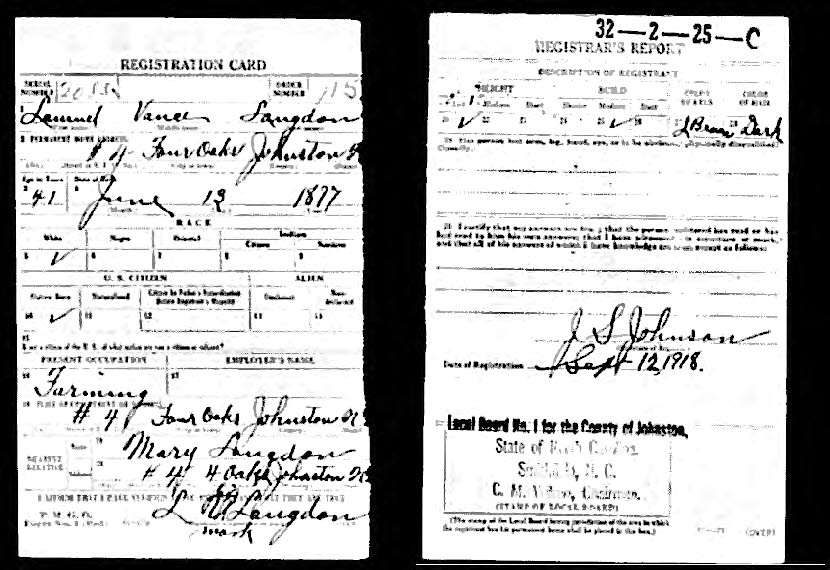 REGISTRATION CARD
SERIAL NUMBER
ORDER NUMBER 115
1 Lemuel Vance Langdon
2 PERMANENT HOME ADDRESS:
# 4 Four Oaks Johnston
Age in Years Date of Birth
41 June 13 1877
RACE
White Negro Oriental Indian
Citizen
5 ✓ 6 7 8 9
U. S. CITIZEN ALIEN
Native Born Naturalized Citizen by Father's Naturalization Before Registrant's Majority Declarant Non-declarant
10 ✓ 11 12 13 14
15
If not a citizen of the U. S. of what nation are you a citizen or subject?
PRESENT OCCUPATION EMPLOYER'S NAME
16 Farming 17
18 PLACE OF EMPLOYMENT OR BUSINESS:
# 4 Four Oaks Johnston N
NEAREST RELATIVE
Name 19 Mary Langdon
20 # 4 4 Oaks Johnston
I AFFIRM THAT I HAVE VERIFIED ABOVE ANSWERS AND THAT THEY ARE TRUE
P. M. G. O.
L V Langdon
mark
32—2—25—C
REGISTRAR'S REPORT
DESCRIPTION OF REGISTRANT
HEIGHT BUILD COLOR OF EYES COLOR OF HAIR
Tall Medium Short Slender Medium Stout
21 ✓ 22 23 24 25 ✓ 26 27 Brown Dark
29 Has person lost arm, leg, hand, eye, or is he obviously physically disqualified?
30 I certify that my answers are true; that the person registered has read or has had read to him his own answers; that I have witnessed his signature or mark, and that all of his answers of which I have knowledge are true, except as follows:
J S Johnson
Date of Registration Sept 12, 1918.
Local Board No. 1 for the County of Johnston,
State of North Carolina,
Smithfield, N. C.
Chairman.
(STAMP OF LOCAL BOARD)
(The stamp of the Local Board having jurisdiction of the area in which the registrant has his permanent home shall be placed in this box.)
(OVER)